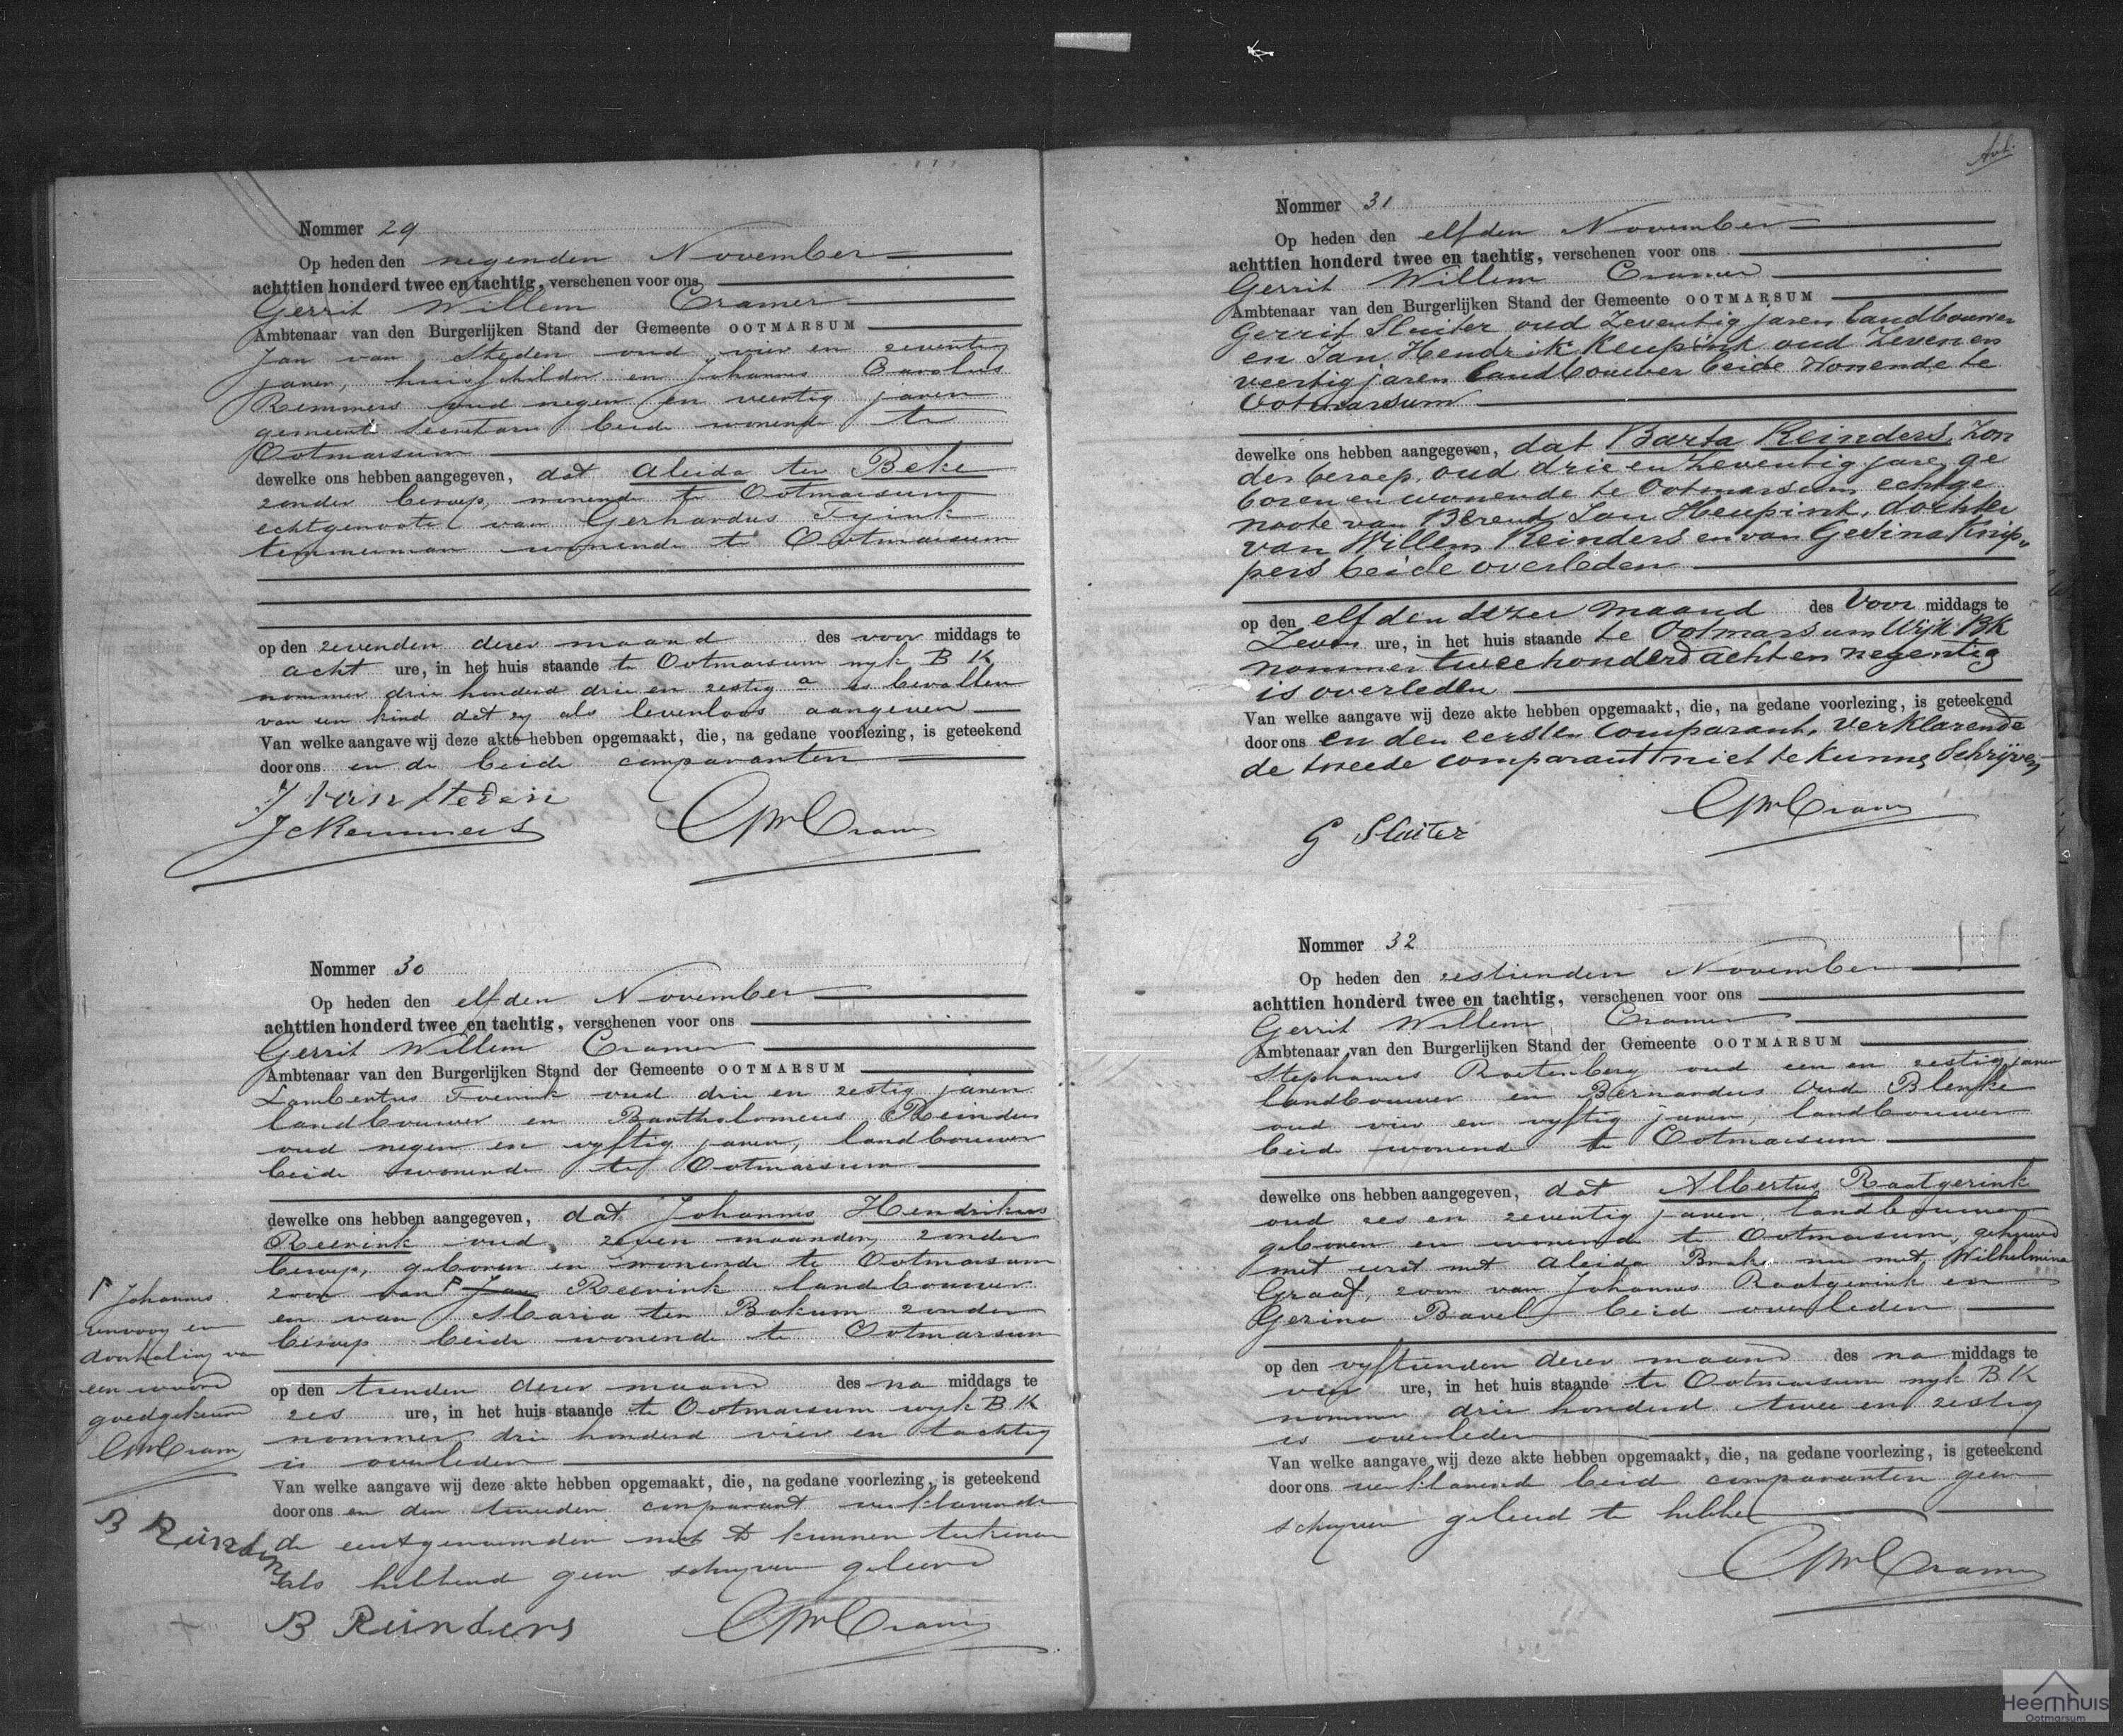 Nommer 29
Op heden den negenden November
achttien honderd twee en tachtig, verschenen voor ons
Gerrit Willem Cramer
Ambtenaar van den Burgerlijken Stand der Gemeente OOTMARSUM
Jan van Steden oud vier en zeventig
jaren, huisschilder en Johannes Carolus
Remmers oud negen en veertig jaren
gemeente secretaris beide wonende te
Ootmarsum
dewelke ons hebben aangegeven, dat Aleida ter Beke
zonder beroep, wonende te Ootmarsum
echtgenoote van Gerhardus Tijink
timmerman wonende te Ootmarsum
op den zevenden dezer maand des voor middags te
acht ure, in het huis staande te Ootmarsum wyk B K
nommer drie honderd drie en zestig a is bevallen
van een kind dat zy als levenloos aangeven
Van welke aangave wij deze akte hebben opgemaakt, die, na gedane voorlezing, is geteekend
door ons en de beide comparanten
J van Steden
JCRemmers
GWCramer
Nommer 30
Op heden den elfden November
achttien honderd twee en tachtig, verschenen voor ons
Gerrit Willem Cramer
Ambtenaar van den Burgerlijken Stand der Gemeente OOTMARSUM
Lambertus oud drie en zestig jaren
landbouwer en Bartholomeus Reinders
oud negen en vyftig jaren, landbouwer
beide wonende te Ootmarsum
dewelke ons hebben aangegeven, dat Johannes Hendrikus
Reerink oud zeven maanden, zonder
beroep, geboren en wonende te Ootmarsum
zoon van Jan Reerink landbouwer
en van Maria ten Bokum zonder
beroep beide wonende te Ootmarsum
op den tienden dezer maand des na middags te
zes ure, in het huis staande te Ootmarsum wyk B K
nommer drie honderd vier en tachtig
is overleden
Van welke aangave wij deze akte hebben opgemaakt, die, na gedane voorlezing, is geteekend
door ons en den tweeden comparant verklarende
de eerstgenoemden niet te kunnen teekenen
als hebbende geen schryven geleerd
B Reinders
GWCramer
Johannes
renvooy en
doorhaling van
een woord
goedgekeurd
GWCramer
B Reinders
Art.
Nommer 31
Op heden den elfden November
achttien honderd twee en tachtig, verschenen voor ons
Gerrit Willem Cramer
Ambtenaar van den Burgerlijken Stand der Gemeente OOTMARSUM
Gerrit Sluiter oud Zeventig jaren landbouwer
en Jan Hendrik Keupink oud Zeven en
veertig jaren landbouwer beide wonende te
Ootmarsum
dewelke ons hebben aangegeven, dat Barta Reinders, Zon
der beroep, oud drie en zeventig jare, ge
boren en wonende te Ootmarsum echtge
noote van Berend Jan Heupink, dochter
van Willem Reinders en van Gesina Knip„
pers beide overleden
op den elfden dezer maand des Voor middags te
Zeven ure, in het huis staande te Ootmarsum Wijk BK
nommer twee honderd acht en negentig
is overleden
Van welke aangave wij deze akte hebben opgemaakt, die, na gedane voorlezing, is geteekend
door ons en den eersten comparant, verklarende
de tweede comparant niet te kunnen Schrijven
GWCramer
G Sluiter
Nommer 32
Op heden den zestienden November
achttien honderd twee en tachtig, verschenen voor ons
Gerrit Willem Cramer
Ambtenaar van den Burgerlijken Stand der Gemeente OOTMARSUM
Stephanus oud een en zestig jaren
landbouwer en Bernardus Oud Blenke
oud vier en vyftig jaren, landbouwer
beide wonende te Ootmarsum
dewelke ons hebben aangegeven, dat Albertus Raatgerink
oud zes en zeventig jaren landbouwer
geboren en wonende te Ootmarsum, gehuwd
met eerst met Aleida nu met Wilhelmina
Graaf, zoon van Johannes Raatgerink en
Gerina Bavel beide overleden
op den vyftienden dezer maand des na middags te
vier ure, in het huis staande te Ootmarsum wyk B K
nommer drie honderd twee en zestig
is overleden
Van welke aangave wij deze akte hebben opgemaakt, die, na gedane voorlezing, is geteekend
door ons verklarende beide comparanten geen
schryven geleerd te hebben
GWCramer
Heemhuis
Ootmarsum